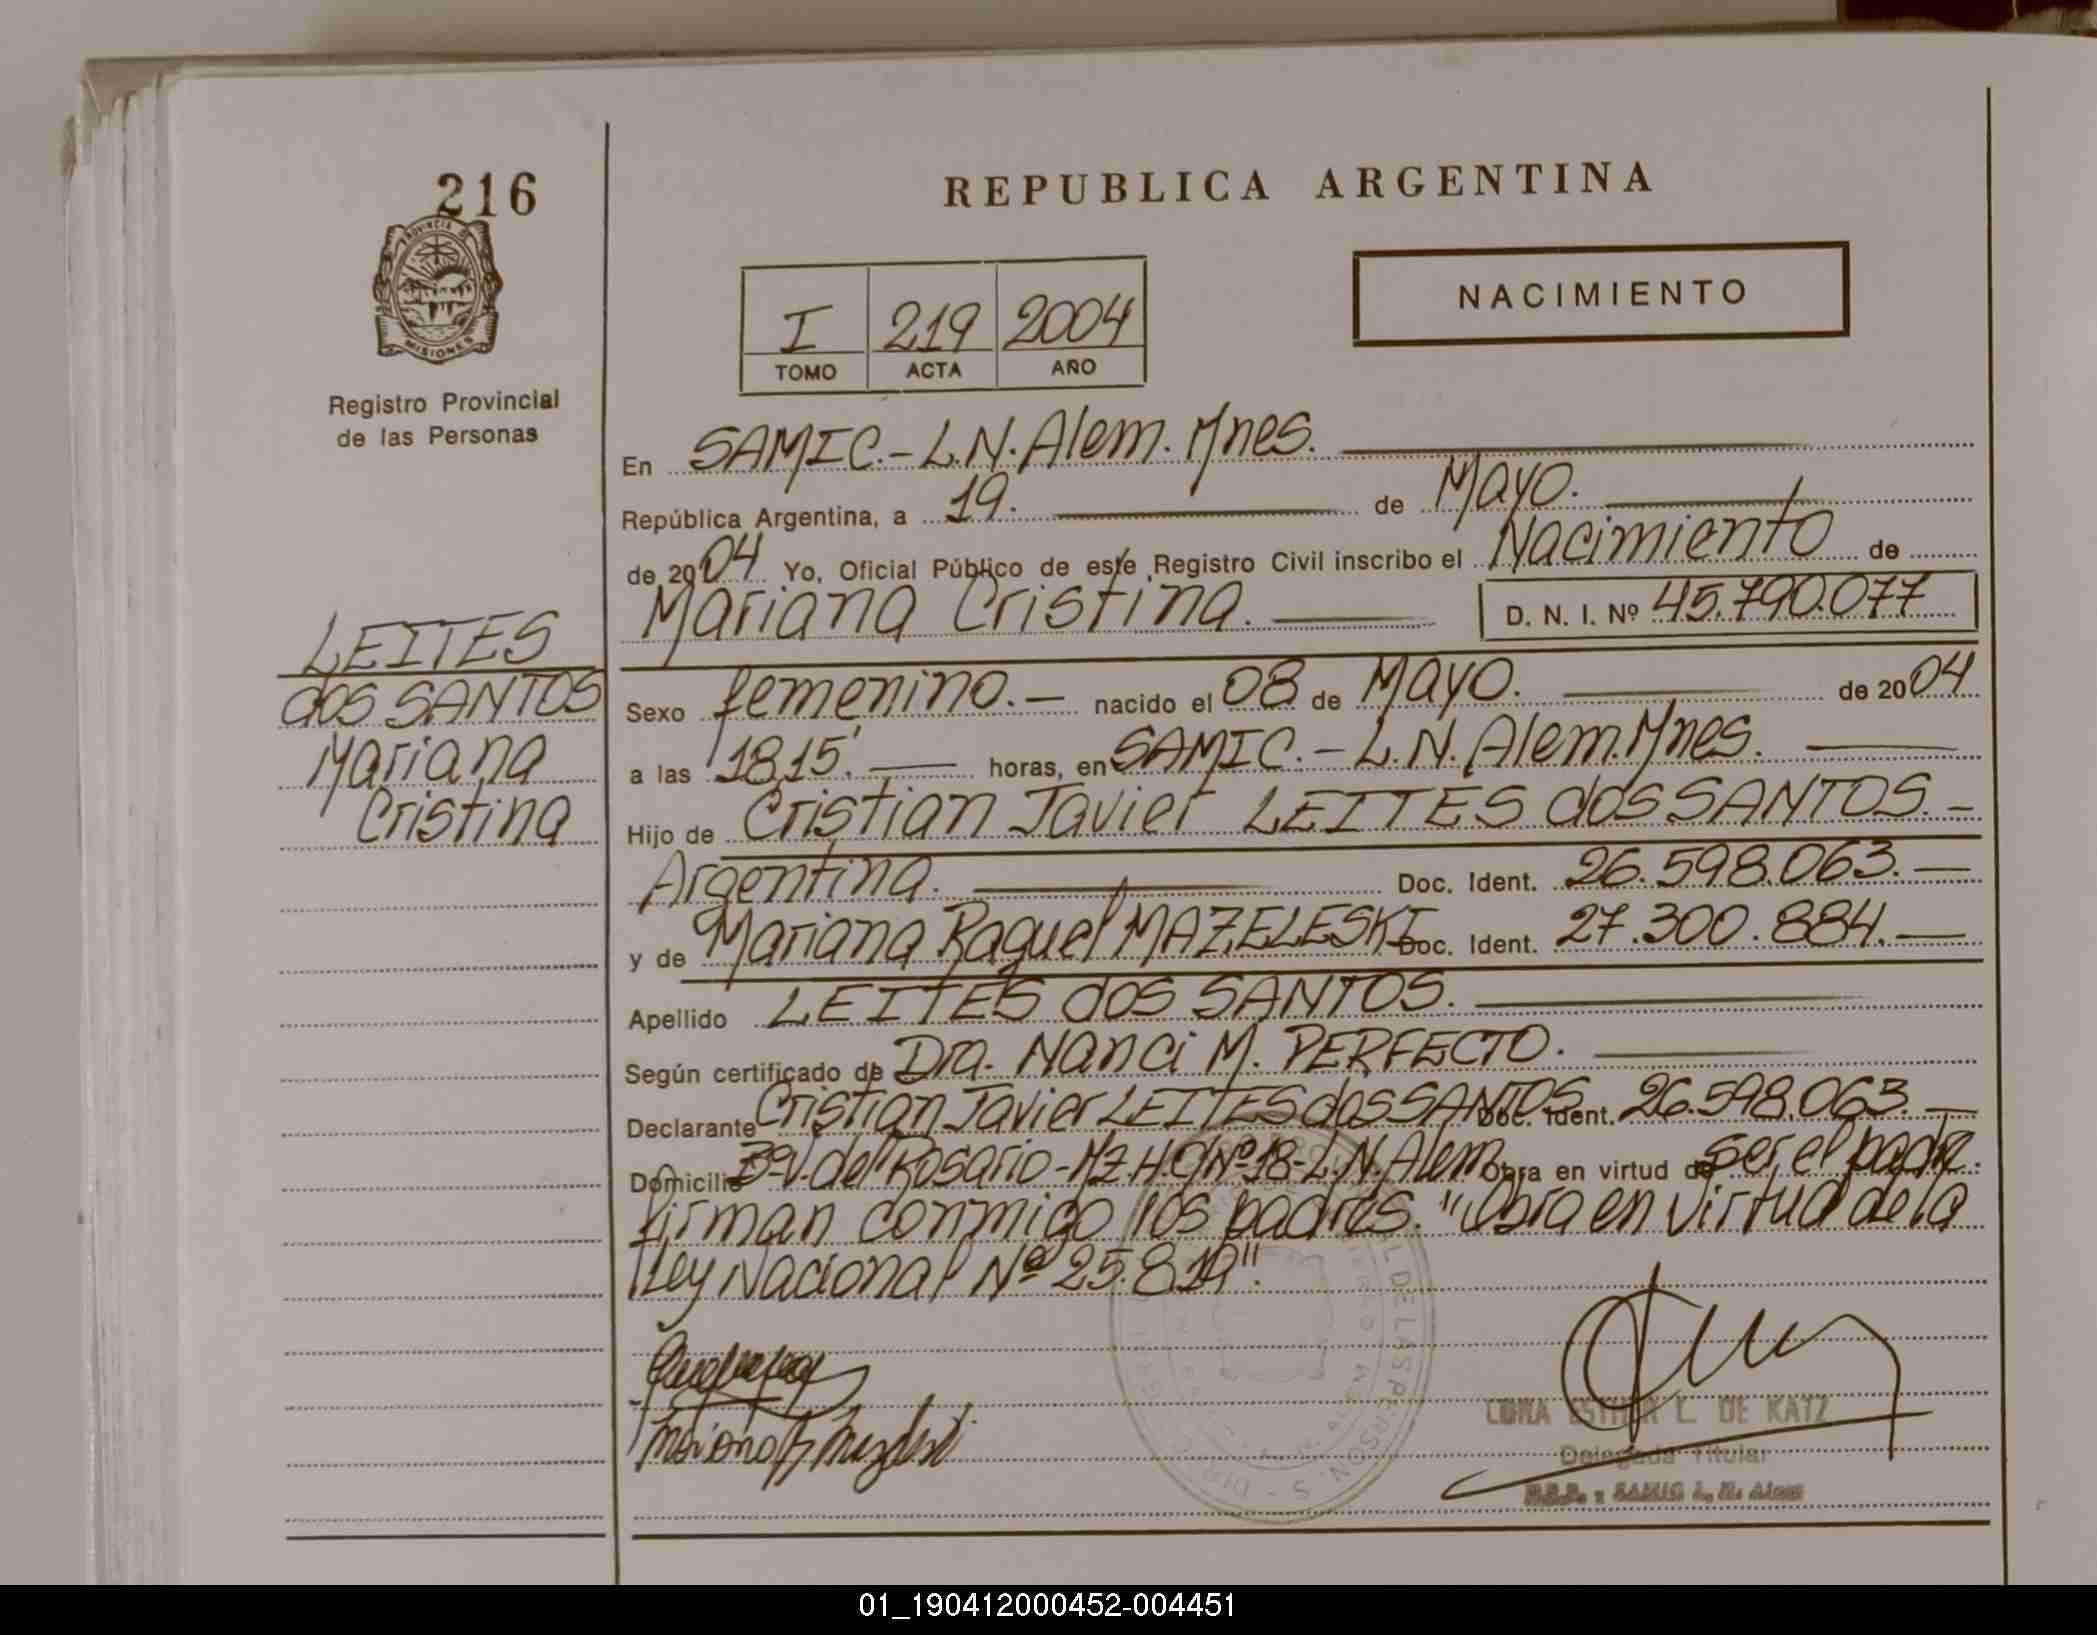 216
PROVINCIA DE
MISIONES
Registro Provincial
de las Personas
LEITES
dos SANTOS
Mariana
Cristina
REPUBLICA ARGENTINA
NACIMIENTO
I 219 2004
TOMO ACTA AÑO
En SAMIC.- L.N. Alem. Mnes.
República Argentina, a 19. de Mayo.
de 2004 Yo, Oficial Público de este Registro Civil inscribo el Nacimiento de
Mariana Cristina. D. N. I. Nº 45.790.077
Sexo femenino.- nacido el 08 de Mayo. de 2004
a las 18,15'. horas, en SAMIC.- L.N. Alem. Mnes.
Hijo de Cristian Javier LEITES dos SANTOS.-
Argentina. Doc. Ident. 26.598.063.-
y de Mariana Raquel MAZELESKI Doc. Ident. 27.300.884.-
Apellido LEITES dos SANTOS.
Según certificado de Dra. Nanci M. PERFECTO.
Declarante Cristian Javier LEITES dos SANTOS Doc. Ident. 26.598.063.-
Domicilio Bº V. del Rosario - Mz. H. Nº 18 - L.N. Alem Obra en virtud de ser el padre.
Firman conmigo los padres. "Obra en virtud de la
Ley Nacional Nº 25.819".
ESTHER L. DE KATZ
Delegada Titular
01_190412000452-004451